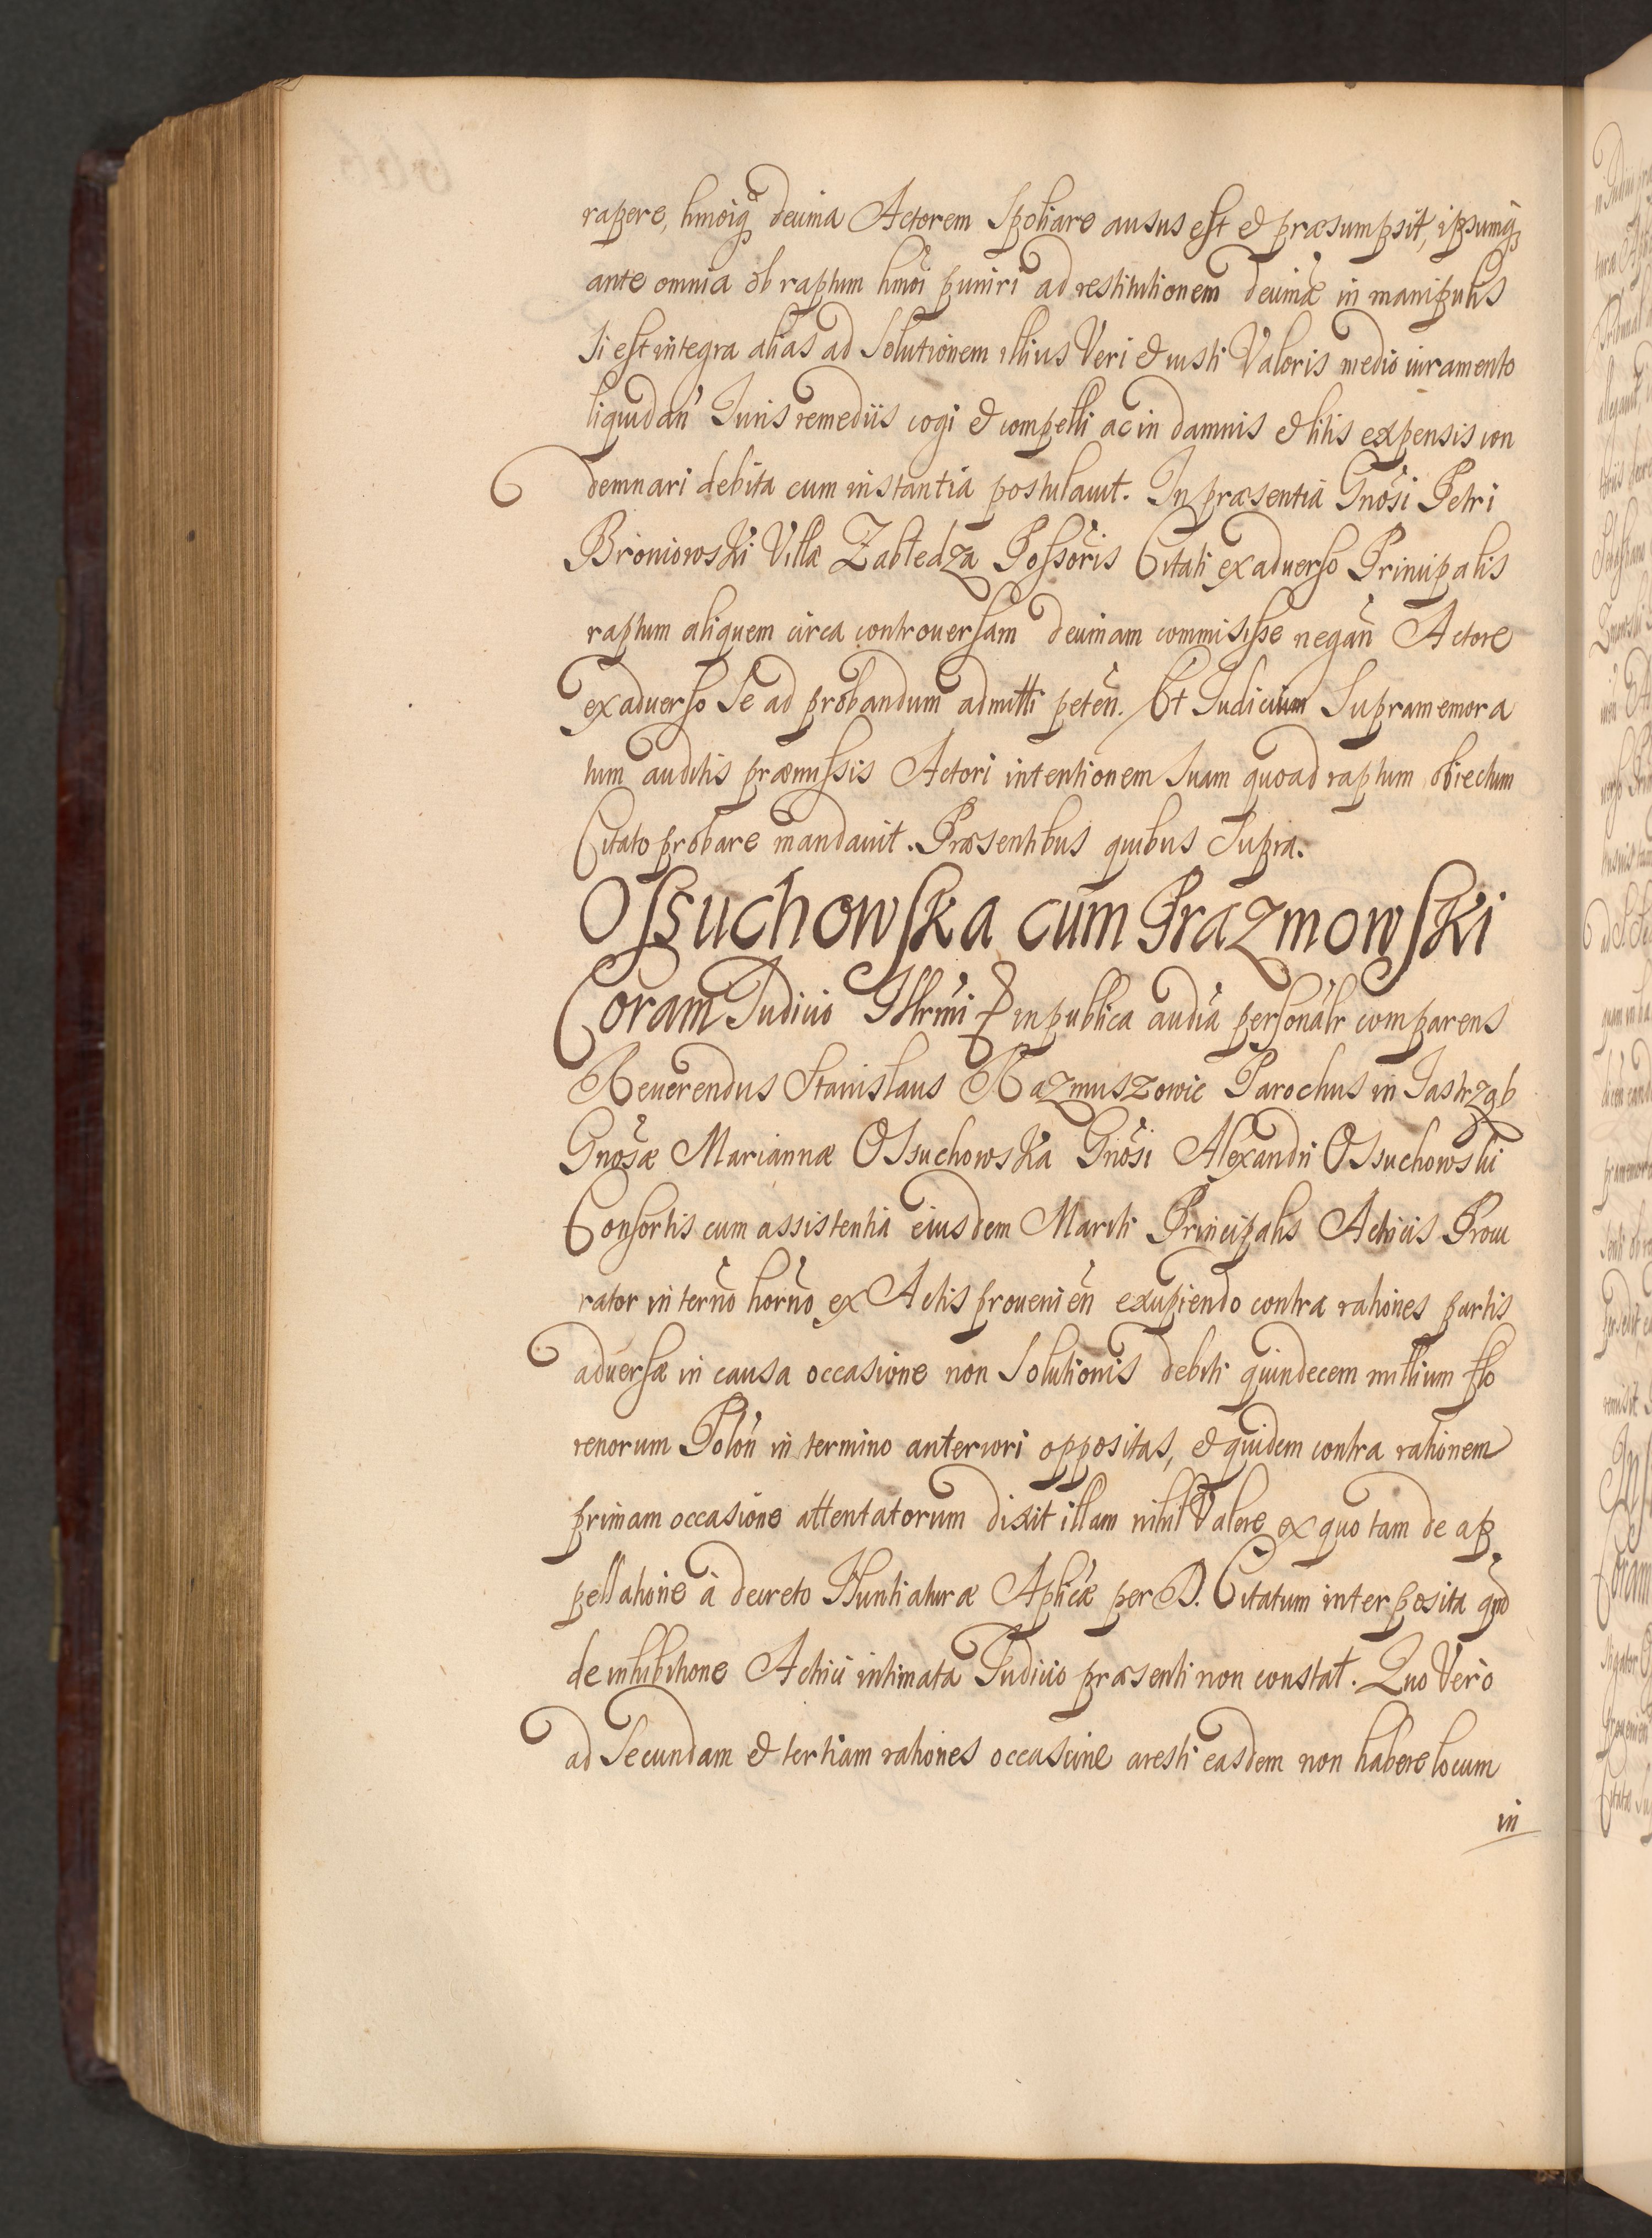 rapere, hmoiq̃ decima Actorem Spoliare ausus est et præsumpsit, ipsumq̃
ante omnia ob raptum hmõi puniri ad restitutionem decimæ in manipulis
Si est integra alias ad Solutionem illius Veri et iusti Valoris medio iuramento
liquidañ Iuris remediis cogi et compelli ac in damnis et litis expensis con
demnari debita cum instantia postulauit. In præsentia Gnõsi Petri
Broniowski Villæ Zabłedza Possõris Citati ex aduerso Principalis
raptum aliquem circa controuersam decimam commisisse negañ Actore
ex aduerso Se ad probandum admitti peteñ. Et Iudicium Supramemora
tum auditis præmissis Actori intentionem Suam quoad raptum obiectum
Citato probare mandauit. Præsentibus quibus Supra.
Ossuchowska cum Prazmowski
Coram Iudicio Illrmi in publica audia personalr comparens
Reuerendus Stanislaus Razmuszowic Parochus in Iastrząb
Gnõsæ Mariannæ Ossuchowska Gnõsi Alexandri Ossuchowski
Consortis cum assistentia eiusdem Mariti Principalis Actricis Procu
rator in terño horño ex Actis prouenieñ excipiendo contra rationes partis
aduersæ in causa occasione non Solutionis debiti quindecem millium flo
renorum Poloñ in termino anteriori oppositas, et quidem contra rationem
primam occasione attentatorum dixit illam nihil Valere ex quo tam de ap
pellatione à decreto Nuntiaturæ Aplicæ per D. Citatum interposita qm̃
de inhibitione Actrici intimata Iudicio præsenti non constat. Quo Verò
ad Secundam et tertiam rationes occasione aresti easdem non habere locum
in